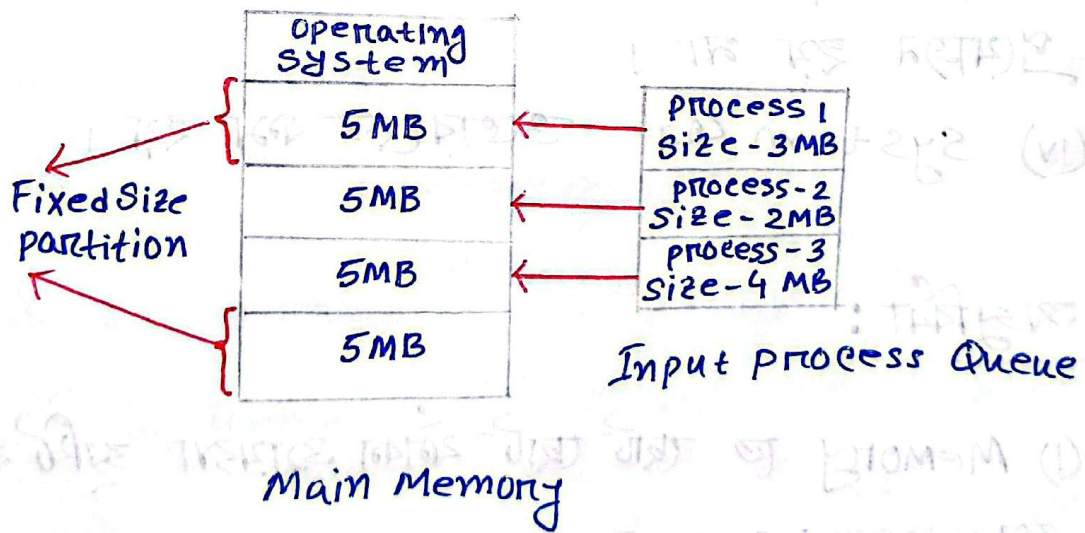 Operating
System
5MB
5MB
5MB
5MB
Fixed Size
partition
process 1
Size-3MB
process-2
Size-2MB
process-3
Size-4 MB
Input process Queue
Main Memory